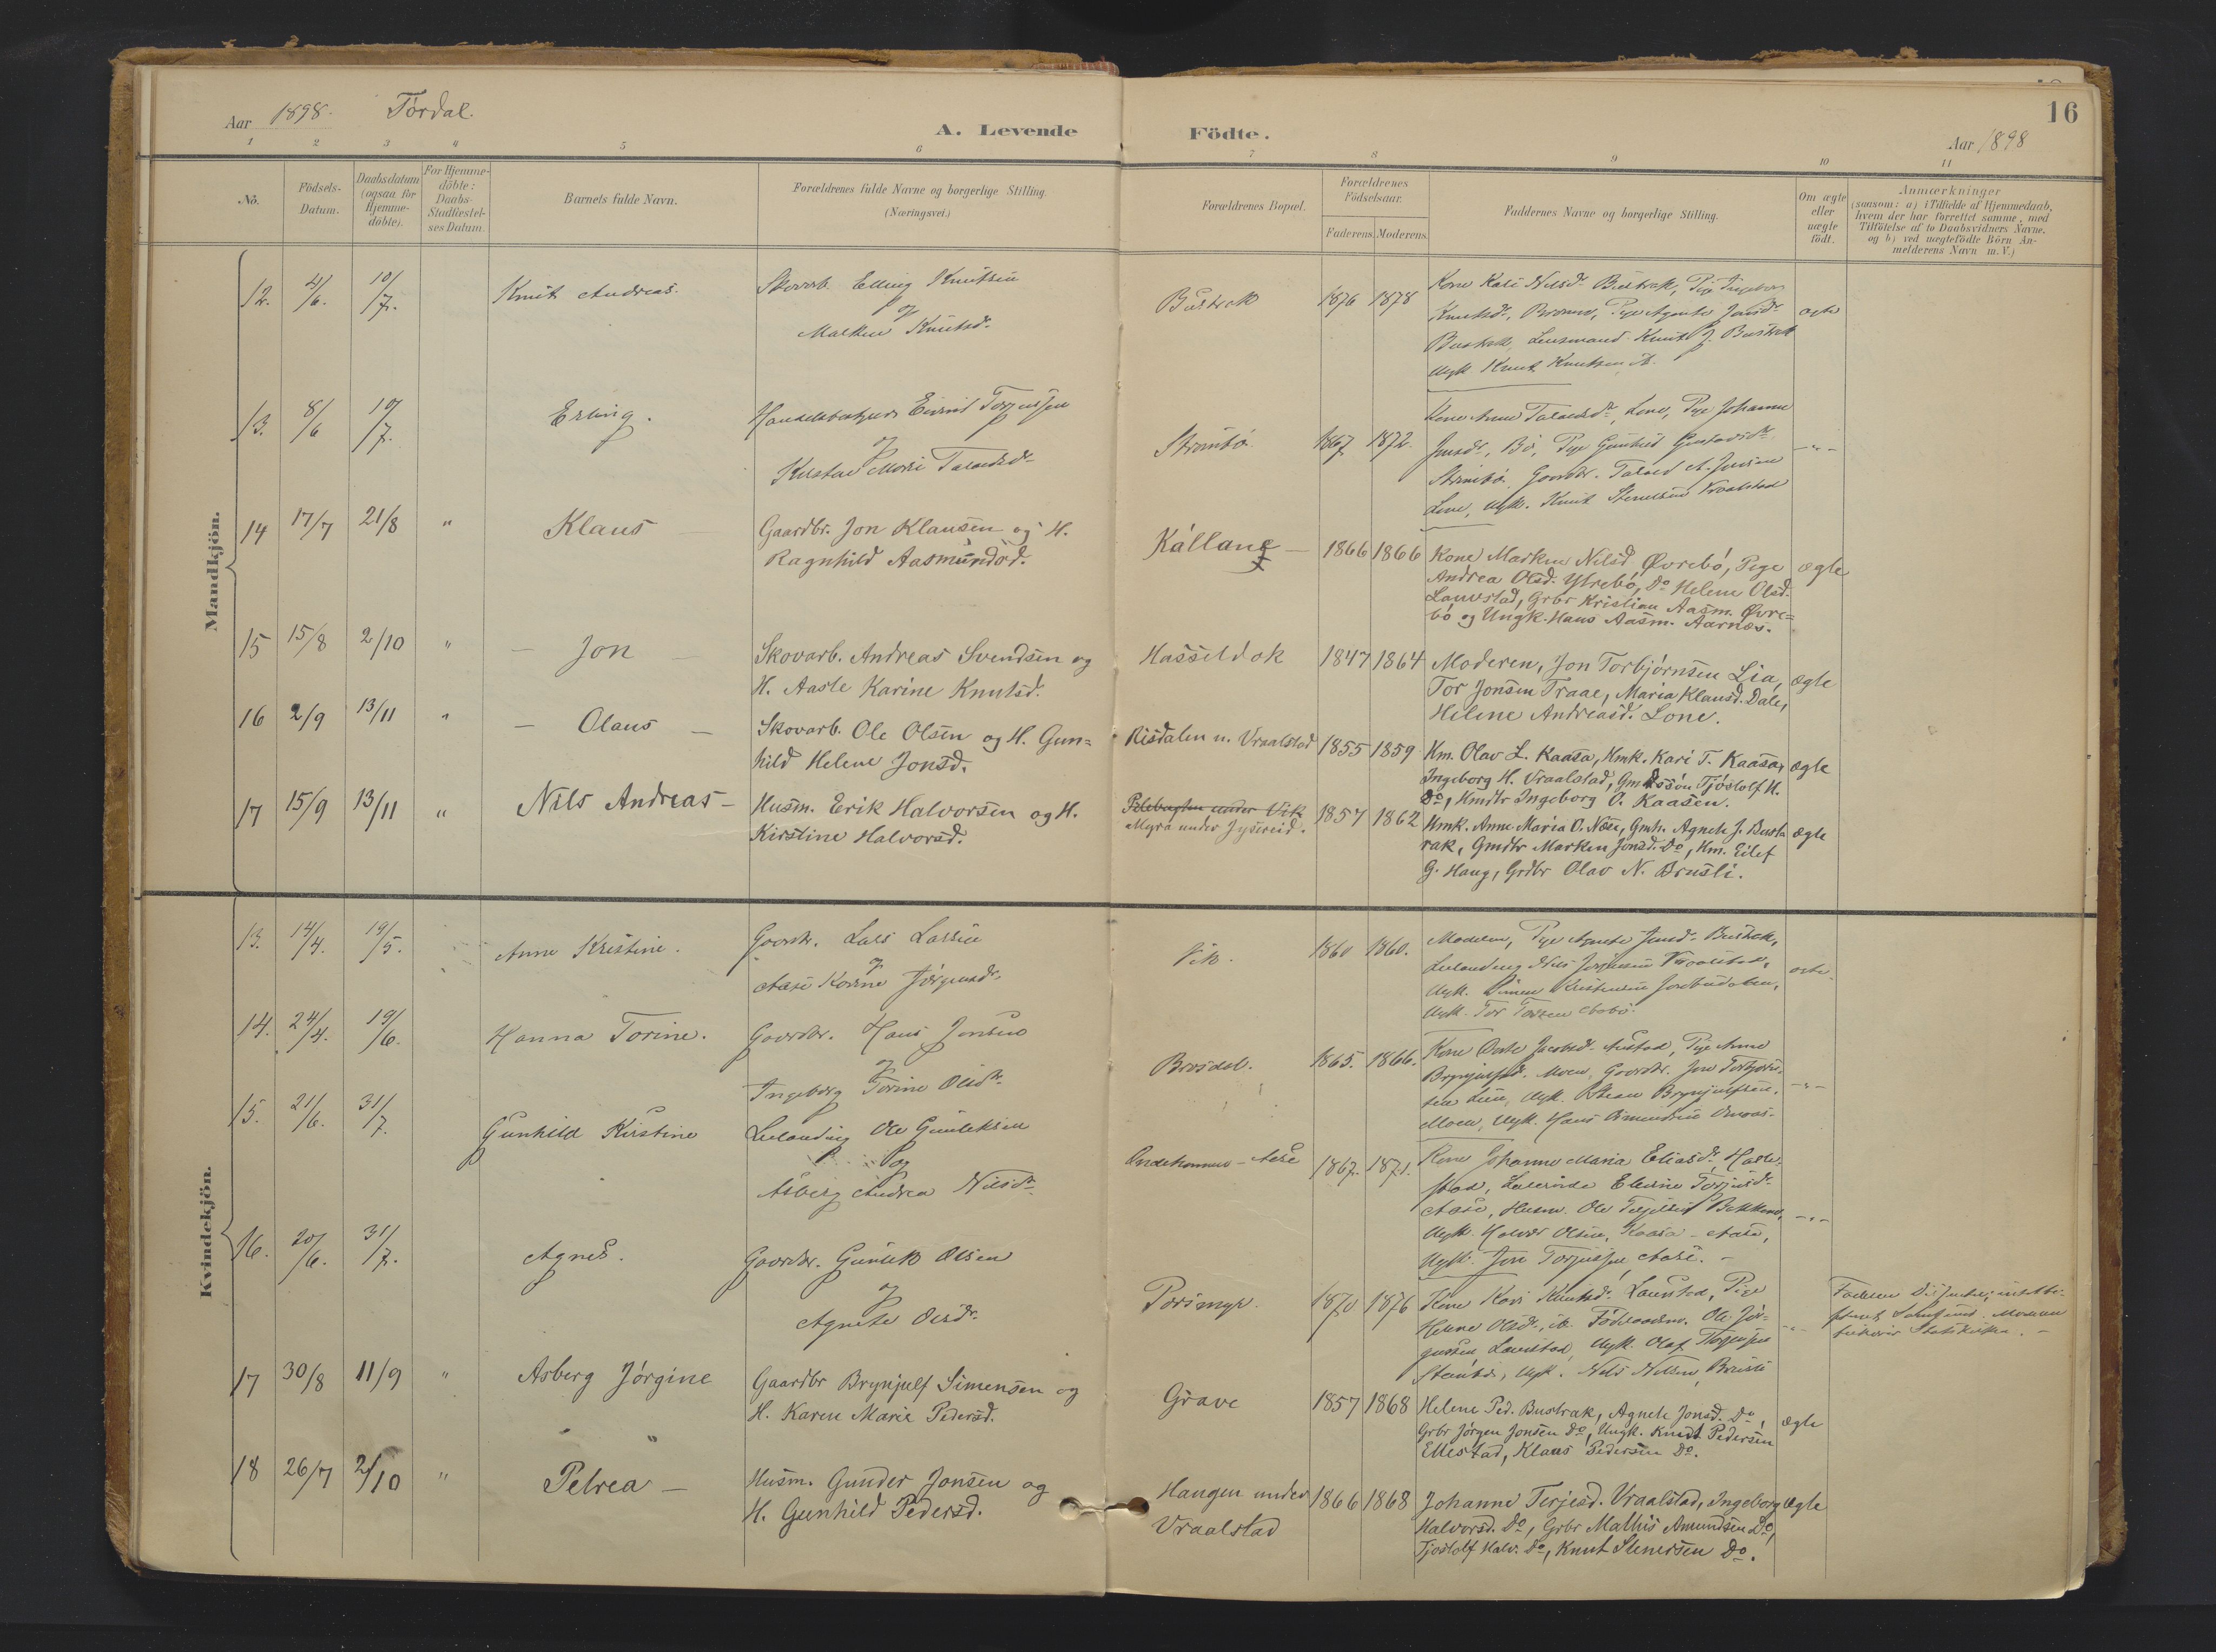 Aar 1898. Tördal.
A. Levende Födte.
16
Aar 1898
1 2 3 4 5 6 7 8 9 10 11
No.
Födsels-Datum.
Daabsdatum (ogsaa for Hjemme-döbte).
For Hjemme-döbte: Daabs-Stadfæstel-ses Datum.
Barnets fulde Navn.
Forældrenes fulde Navne og borgerlige Stilling.
(Næringsvei.)
Forældrenes Bopæl.
Forældrenes Födselsaar.
Faderens. Moderens.
Faddernes Navne og borgerlige Stilling.
Om ægte eller uægte födt.
Anmærkninger
(saasom: a) i Tilfælde af Hjemmedaab,
hvem der har forrettet samme, med
Tilföielse af to Daabsvidners Navne,
og b) ved uægtefödte Börn An-
melderens Navn m. V.)
Mandkjön.
12. 4/6. 10/7. Knut Andreas.
Skovarb. Elling Knutsen
og
Marken Knutsd.
Bustrak 1876 1878
Kone Kari Nilsd. Bustrak, Pige Ingebor
Knutsd., Pige Agnete Jonsd.
Bustrak, Lensmand Knut J. Bustrak
Ungk. Knut Knutsen
ægte
13. 8/6 10/7. Erling.
Eivind Torjussen
og
Kirstine Marie Taraldsd.
Strømbø. 1867 1872.
Kone Anne Taraldsd., Lone, Pige Johanne
Jonsd., Bö, Pige Gunhild Gustavsd.
Strømbø. Gaardbr. Tarald A. Jonsen
Lone, Ungk. Knut Stenersen Vraalstad
-"-
14 17/7 21/8 " Klaus —
Gaardbr. Jon Klausen og H.
Ragnhild Aasmundsd.
Kállane — 1866 1866
Kone Marken Nilsd Øvrebö, Pige
Andrea Olsd. Ytrebö, Do Helene Olsd.
Lauvstad, Grbr Kristian Aasm. Øvre=
bö og Ungk. Hans Aasm. Aarnes.
ægte
15 15/8 2/10 " — Jon —
Skovarb. Andreas Svendsen og
H. Aaste Karine Knutsd.
Hasseldok 1847 1864
Moderen, Jon Torbjörnsen Lia,
Tor Jonsen Traae, Maria Klausd. Dale,
Helene Andreasd. Lone.
ægte
16 2/9 13/11 " — Olaus —
Skovarb. Ole Olsen og H. Gun=
hild Helene Jonsd.
Risdalen u. Vraalstad 1855 1859
Hm. Olav L. Kaasa, Hmk. Kari T. Kaasa,
Ingeborg H. Vraalstad, Gmdssön Tjöstolf H.
Do, Hmdtr Ingeborg O. Kaasen.
ægte
17 15/9 13/11 " Nils Andreas —
Husm. Erik Halvorsen og H.
Kirstine Halvorsd.
under Vik
Myra under Jysereid. 1857 1862
Hmk. Anne Maria O. Næse, Gmtr. Agnete J. Bust
rak, Gmdtr Marken Jonsd. Do, Hm. Eilef
G. Haug, Grdbr Olav N. Brusli.
ægte
Kvindekjön.
13. 14/4. 19/5. Anne Kristine.
Gaardbr. Lars Larsen
og
Aase Karine Jörgensd.
Vik. 1860 1860.
Moderen, Pige Agnete Jonsd. Bustrak,
Nils Vraalstad,
Ungk. Simen Kristensen
Ungk. Tor Torsen
ægte.
14. 24/4. 19/6. Hanna Torine.
Gaardbr. Hans Jonsen
og
Ingeborg Torine Olsd.
Brosdal. 1865. 1866.
Kone Jacobsd. Pige Anne
Brynjulfsd. Moen, Gaardbr. Jon Torbjörn-
sen Lien, Ungk. Stean Brynjulfsen,
Moen, Ungk. Hans
-"-
15. 21/6. 31/7. Gunhild Kirstine
Ole Gunleksen
og
Asberg Andrea Nilsd.
Aase 1867. 1871.
Kone Johanne Maria Eliasd.,
Torjusd.
Aase, Husm. Ole Bekken,
Ungk. Halvor Olsen, Kaasa - Aase,
Ungk. Jon Torjussen, Aase. —
-"-
16. 20/6. 31/7. Agnes.
Gaardbr. Gunlek Olsen
og
Agnete Olsd.
Porsmyr. 1870 1876
Kone Kari Knutsd. Laustad, Pige
Helene Olsd., ib. Föderaadsm. Ole Jör-
gensen Laustad, Ungk. Olaf Torjussen
Ungk. Nils Nilsen, Brusli
Faderen Dissenter,
Moderen
Statskirken. —
17 30/8 11/9 " Asberg Jörgine
Gaardbr Brynjulf Simensen og
H. Karen Marie Pedersd.
Grave 1857 1868
Helene Ped. Bustrak, Agnete Jonsd. Do,
Grbr Jörgen Jonsen Do, Ungk. Knut Pedersen
Ellestad, Klaus Pedersen Do.
ægte
18 26/7 2/10 " Petrea —
Husm. Gunder Jonsen og
H. Gunhild Pedersd.
Haugen under
Vraalstad 1866 1868
Johanne Terjesd. Vraalstad, Ingeborg
Halvorsd. Do, Grbr Mathis Amundsen Do,
Tjostolf Halv. Do, Knut Stenersen Do.
ægte